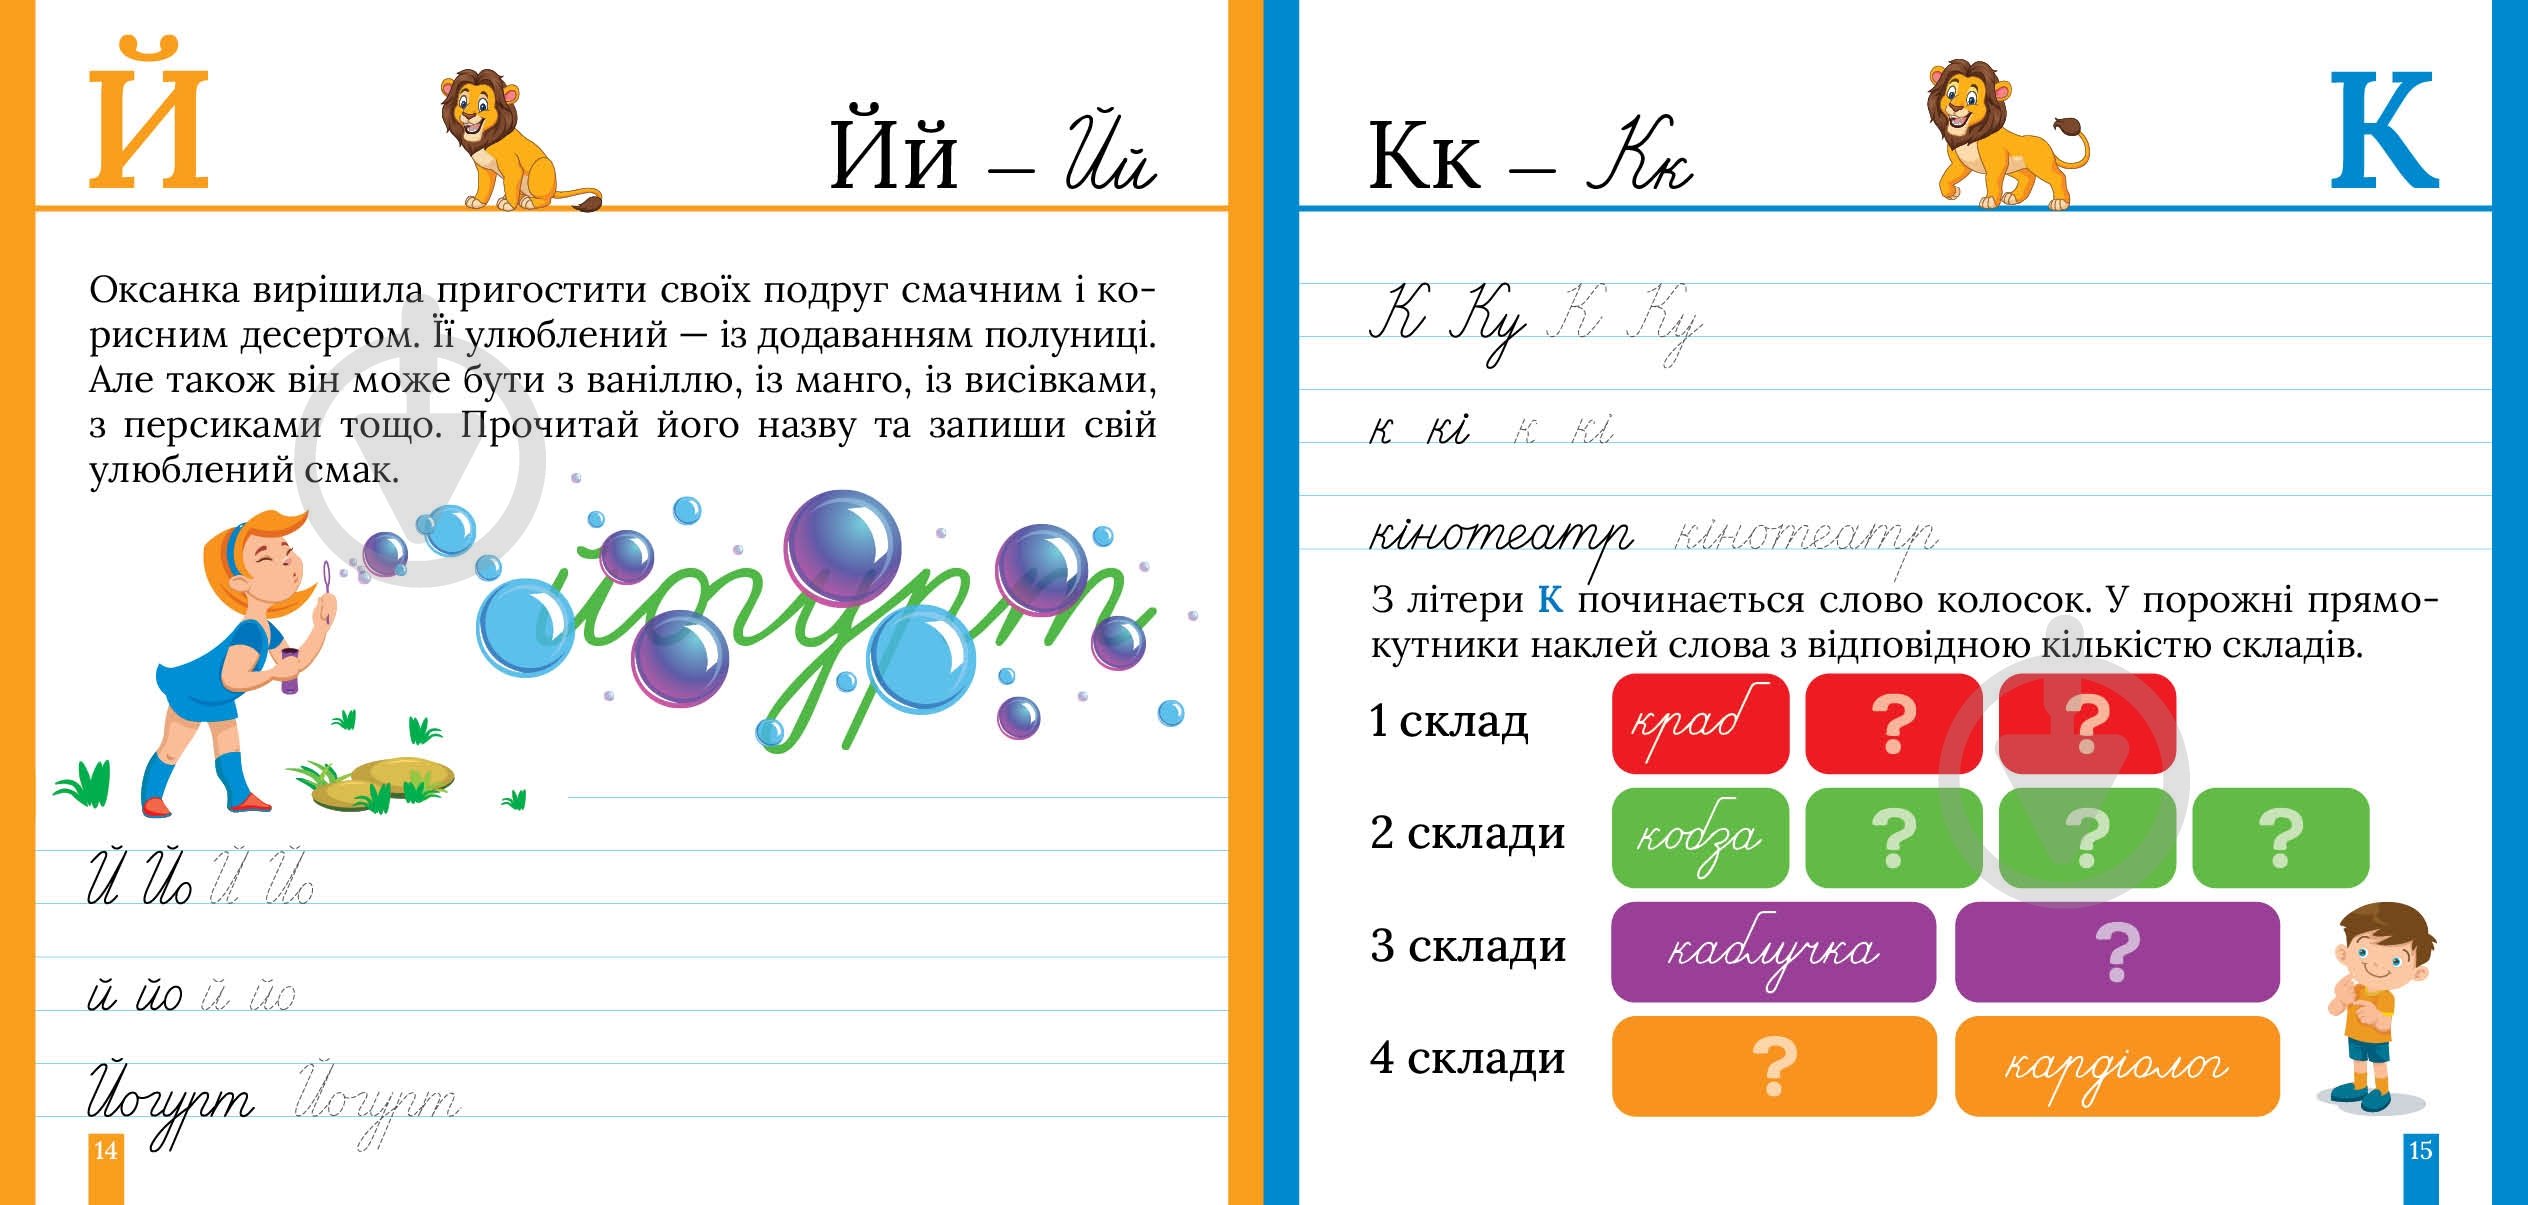 Й
Йй — Йй
Оксанка вирішила пригостити своїх подруг смачним і ко-
рисним десертом. Її улюблений — із додаванням полуниці.
Але також він може бути з ваніллю, із манго, із висівками,
з персиками тощо. Прочитай його назву та запиши свій
улюблений смак.
йогурт
Й Йо Й Йо
й йо й йо
Йогурт Йогурт
14
Кк — Кк
К
К Ку К Ку
к кі к кі
кінотеатр кінотеатр
З літери К починається слово колосок. У порожні прямо-
кутники наклей слова з відповідною кількістю складів.
1 склад краб ? ?
2 склади кобза ? ? ?
3 склади каблучка ?
4 склади ? кардіолог
15